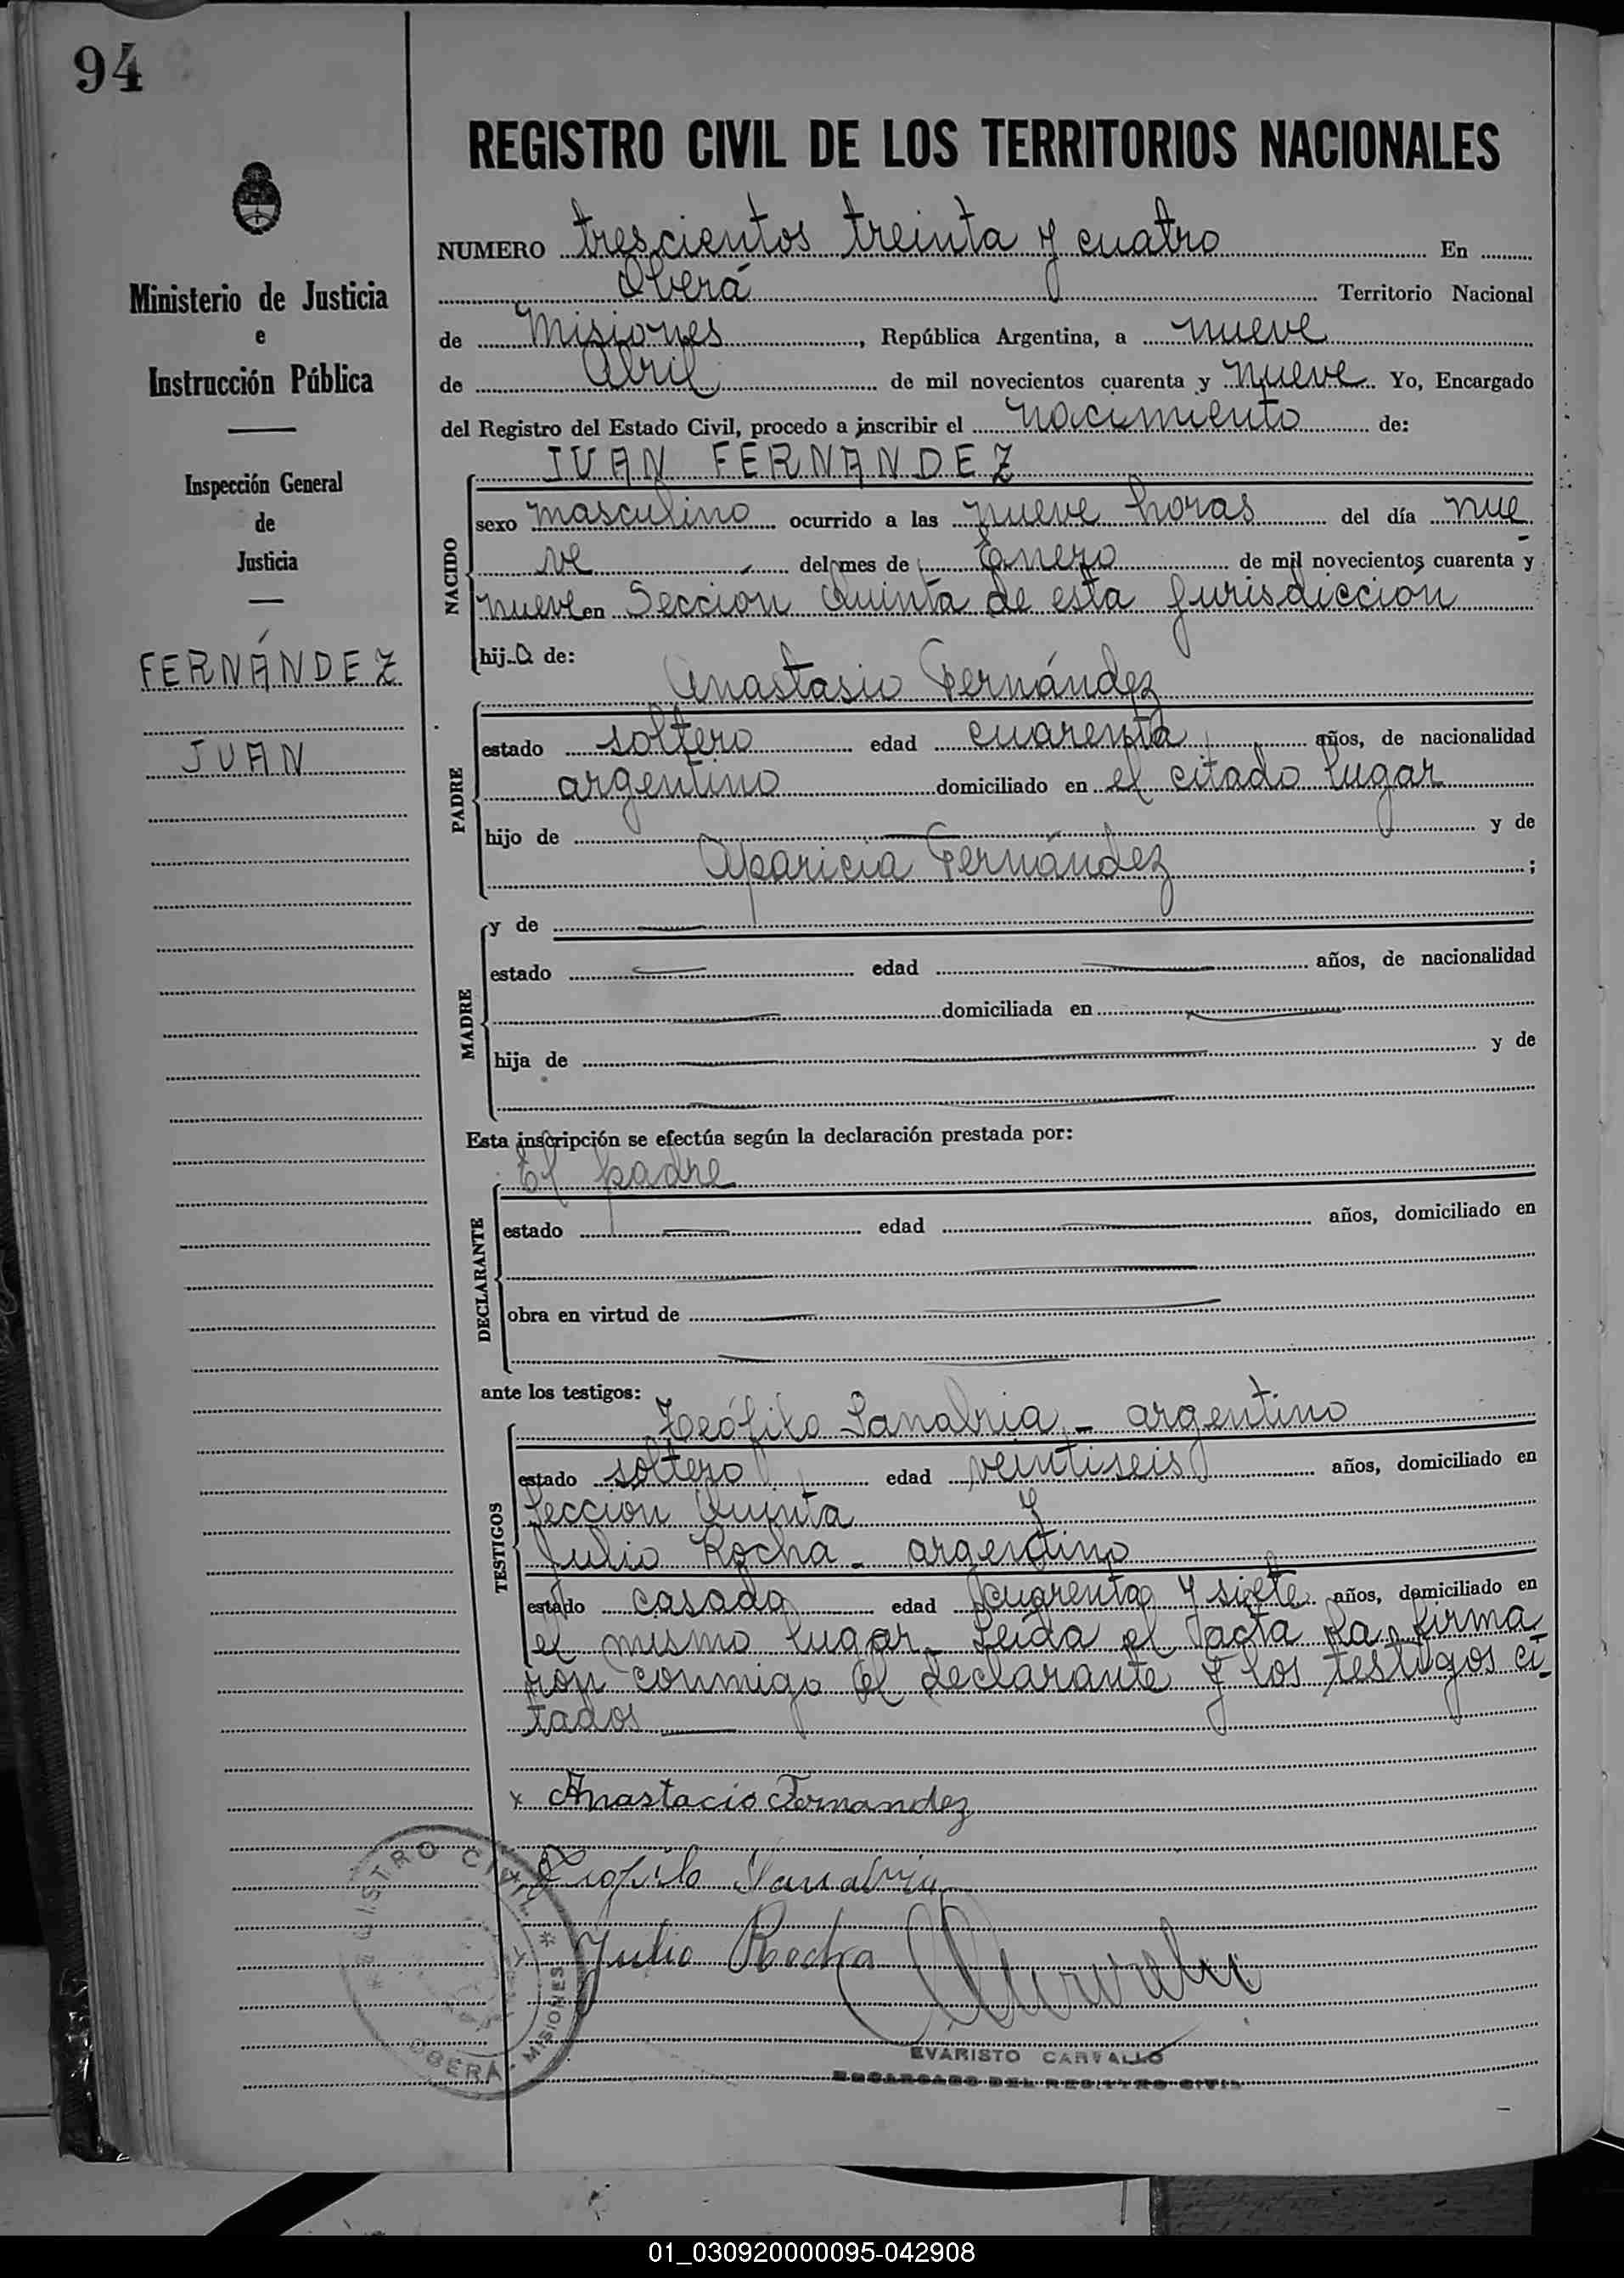 94
REGISTRO CIVIL DE LOS TERRITORIOS NACIONALES
NUMERO trescientos treinta y cuatro En
Oberá Territorio Nacional
de Misiones, República Argentina, a nueve
de Abril de mil novecientos cuarenta y nueve Yo, Encargado
del Registro del Estado Civil, procedo a inscribir el nacimiento de:
Ministerio de Justicia
e
Instrucción Pública
Inspección General
de
Justicia
FERNÁNDEZ
JUAN
NACIDO
JUAN FERNANDEZ
sexo masculino ocurrido a las nueve horas del día nue-
ve del mes de Enero de mil novecientos cuarenta y
nueve en Seccion Quinta de esta jurisdicción
hijo de:
PADRE
Anastasio Fernández
estado soltero edad cuarenta años, de nacionalidad
argentino domiciliado en el citado lugar
hijo de y de
Aparicia Fernández ;
MADRE
y de
estado edad años, de nacionalidad
domiciliada en
hija de y de
Esta inscripción se efectúa según la declaración prestada por:
DECLARANTE
El padre
estado edad años, domiciliado en
obra en virtud de
ante los testigos:
TESTIGOS
Teófilo Sanabria - argentino
estado soltero edad veintiseis años, domiciliado en
Seccion Quinta y
Julio Rocha - argentino
estado casado edad cuarenta y siete años, domiciliado en
el mismo lugar. Leida el acta la firma-
ron conmigo el declarante y los testigos ci-
tados
x Anastacio Fernandez
Teofilo Sanabria
Julio Rocha
EVARISTO CARVALLO
ENCARGADO DEL REGISTRO CIVIL
REGISTRO CIVIL
OBERÁ - MISIONES
01_030920000095-042908